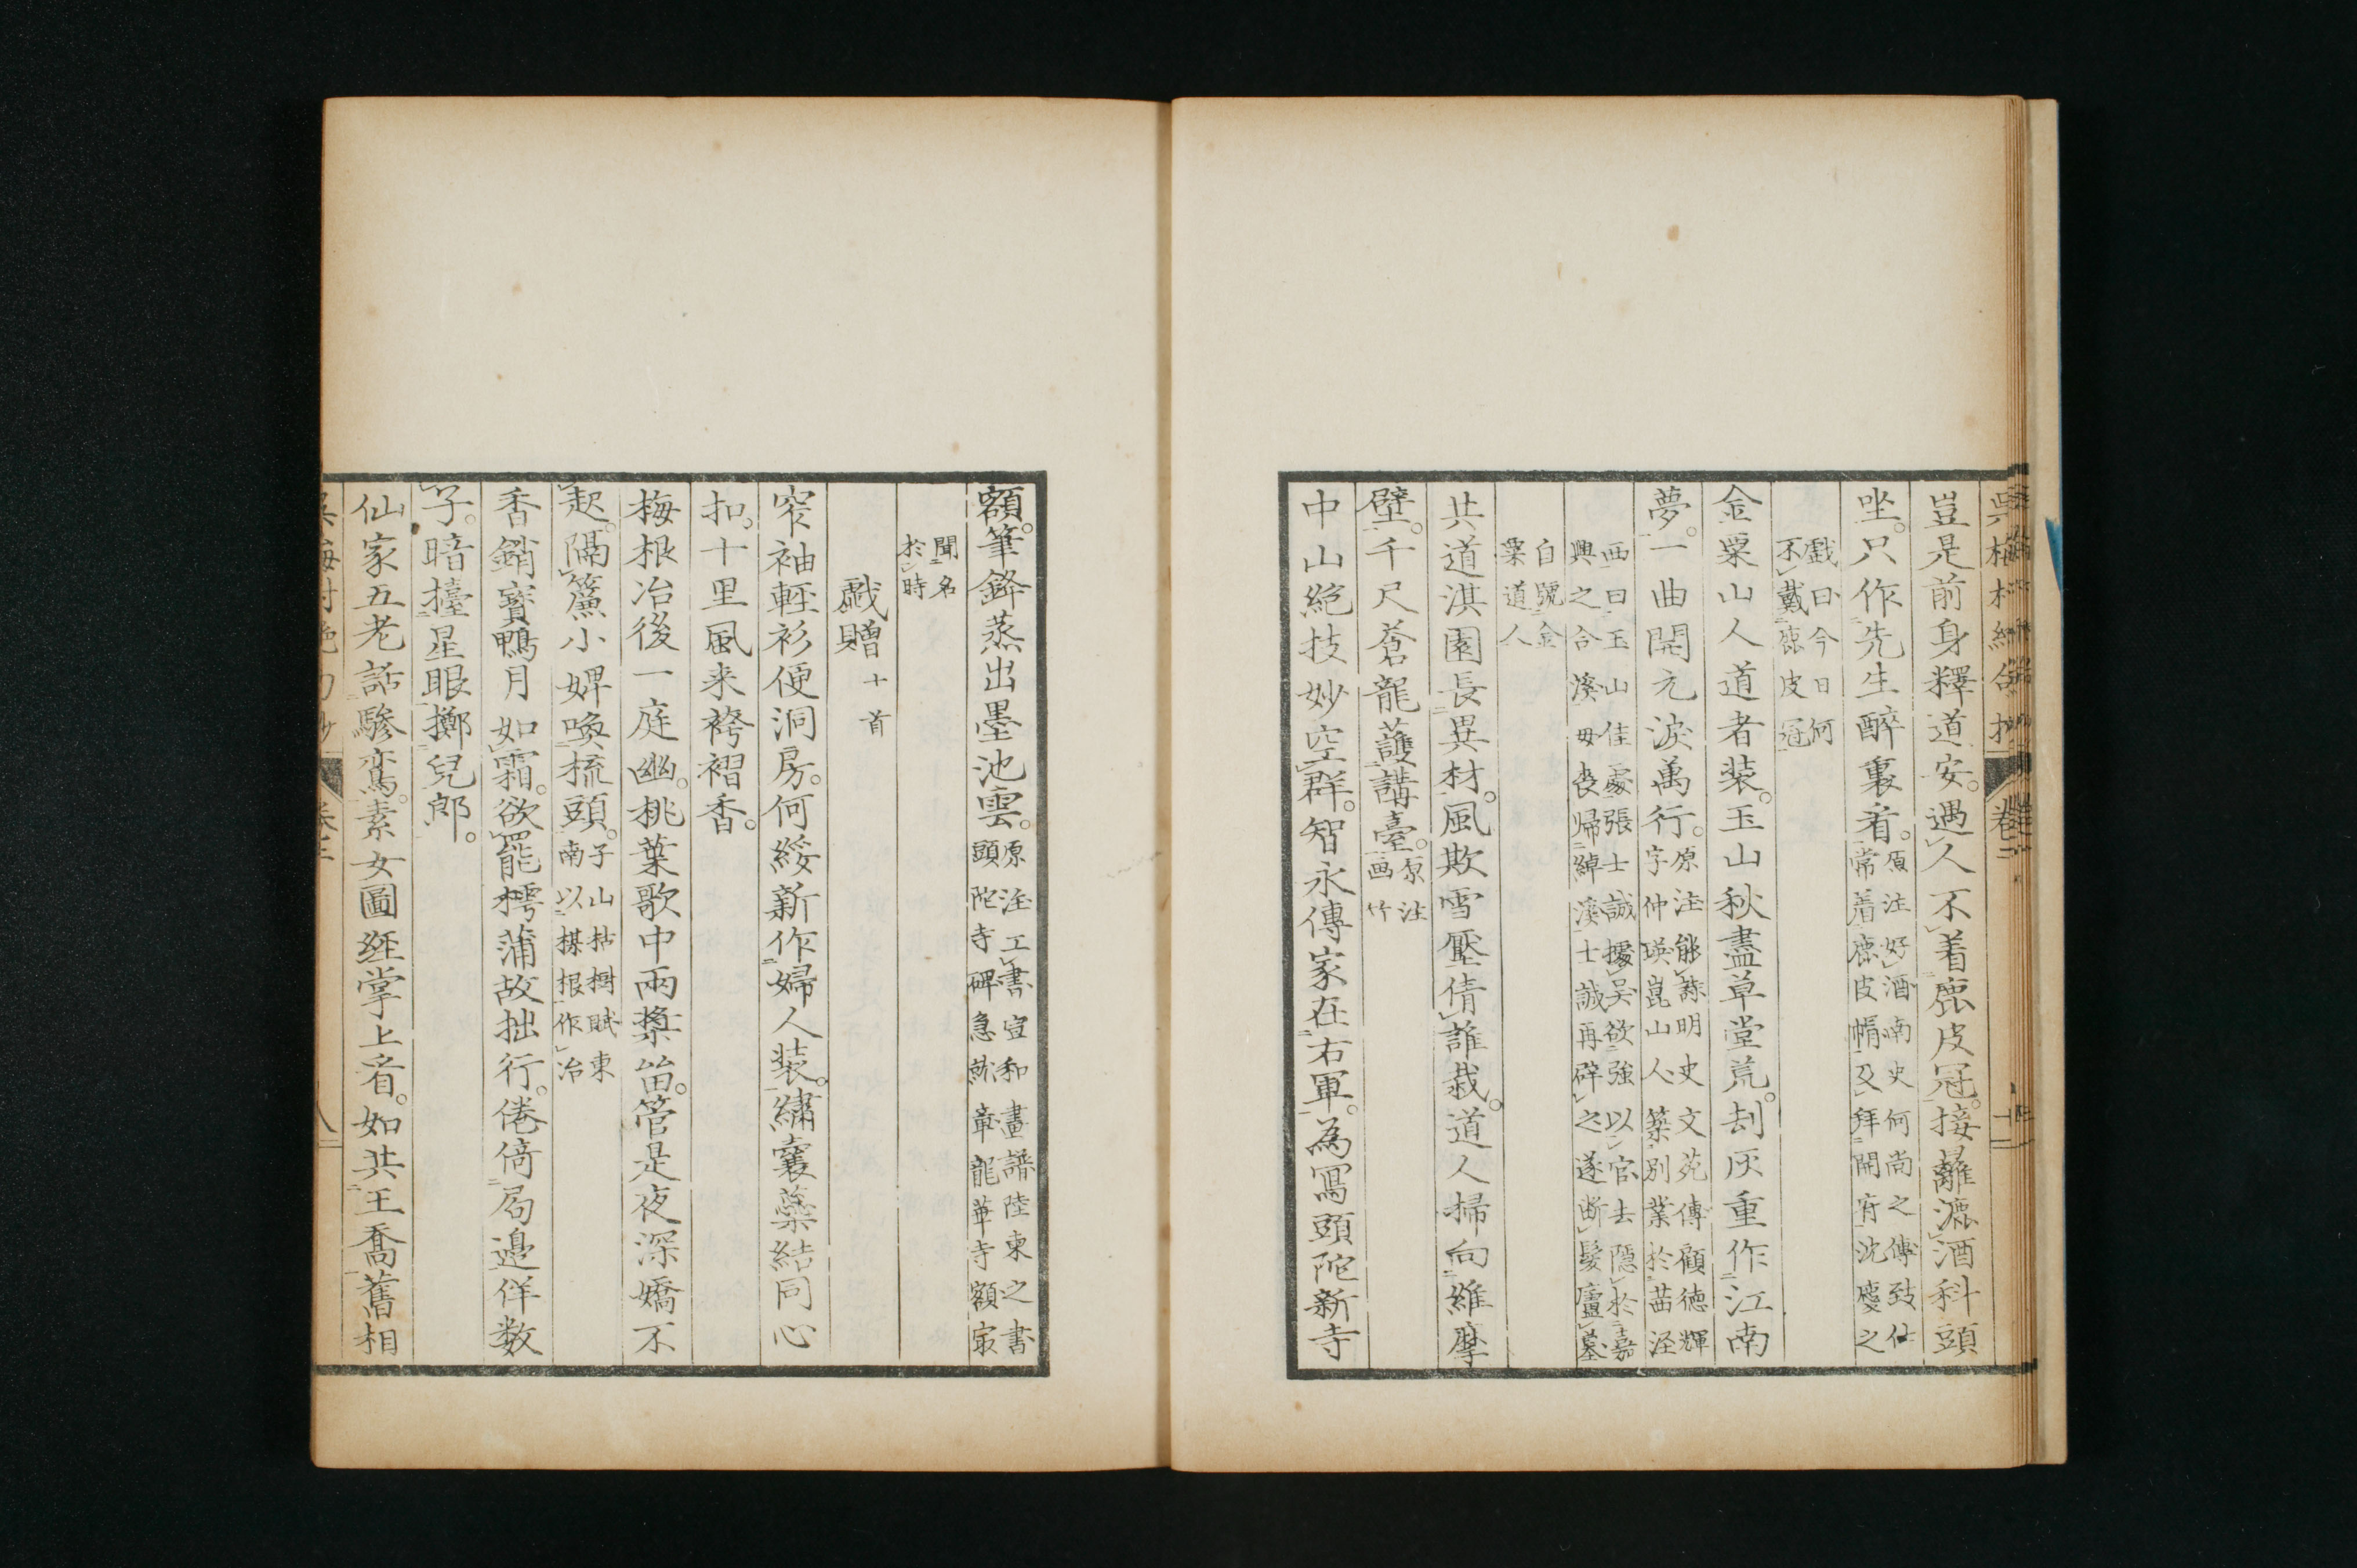 豈是前身釋道安。遇人不着鹿皮冠。接䍦漉酒科頭
坐。只作先生醉裏看。
原注好酒南史何尚之傳致仕
常着鹿皮帽及拜開府沈慶之
戲曰今日何
不戴鹿皮冠
金粟山人道者装。玉山秋盡草堂荒。刦灰重作江南
夢。一曲開元淚萬行。
原注能詩明史文苑傳顧德輝
字仲瑛崑山人築別業於茜涇
西曰玉山佳處張士誠據吳欲強以官去隱於嘉
興之合溪母喪歸綽溪士誠再辟之遂断髮廬墓
自號金
粟道人
共道淇園長異材。風欺雪壓倩誰栽。道人掃向維摩
壁。千尺蒼龍護講臺。
原注
画竹
中山絕技妙空群。智永傳家在右軍。為寫頭陀新寺
額。筆鋒蒸出墨池雲。
原注工書宣和畫譜陸柬之書
頭陀寺碑急就章龍華寺額㝡
聞名
於時
戯贈十首
窄袖輕衫便洞房。何綏新作婦人装。繡囊藥結同心
扣。十里風来袴褶香。
梅根冶後一庭幽。桃葉歌中兩槳笛。管是夜深嬌不
起。隔簾小婢喚梳頭。
子山枯樹賦東
南以梅根作冶
香銷寳鴨月如霜。欲罷樗蒲故拙行。倦倚局邊佯数
子。暗擡星眼擲兒郎。
仙家五老話驂鸞。素女圖經掌上看。如共王喬舊相